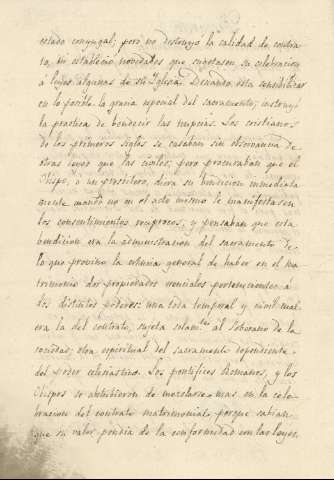 estado conyugal; pero no destruyó la calidad de contra-
to, ni estableció novedades que sugetasen su celebracion
á leyes algunas de su Iglesia. Deseando esta sensibilizar
en lo posible la gracia especial del sacramento; instruyó
la practica de bendecir las nupcias. Los cristianos
de los primeros siglos se casaban sin observancia de
otras leyes que las civiles; pero procuraban que el
Obispo, ó un presbitero, diera su bendicion inmediata
mente cuando no en el acto mismo de manifestasen
los consentimientos reciprocos, y pensaban que esta
bendicion era la administracion del sacramento de
lo que provino la creencia general de haber en el ma
trimonio dos propiedades esenciales pertenecientes á
dos distintos poderes: una toda temporal y civil cual
era la del contrato, sujeta solam.te al Soberano de la
sociedad; otra espiritual del sacramento dependiente
del poder eclesiastico. Los pontifices Romanos, y los
Obispos se abstubieron de mezclarse mas en la cele-
bracion del contrato matrimonial porque sabian
que su valor pendia de la conformidad con las leyes